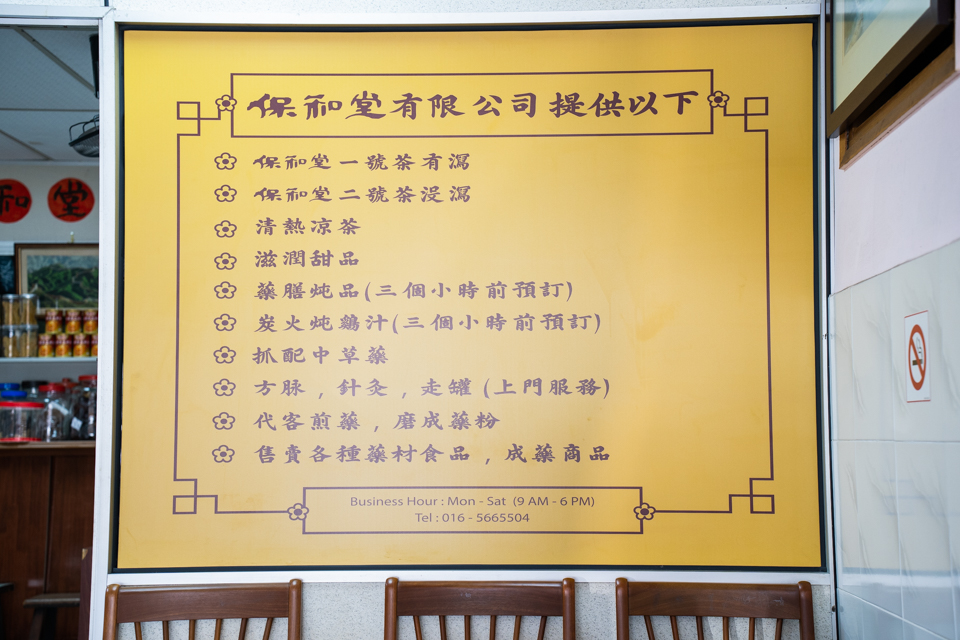 保和堂有限公司提供以下
保和堂一號茶有瀉
保和堂二號茶沒瀉
清熱凉茶
滋潤甜品
藥膳炖品(三個小時前預訂)
炭火炖鷄汁(三個小時前預訂)
抓配中草藥
方脉,針灸,走罐(上門服務)
代客煎藥,磨成藥粉
售賣各種藥材食品,成藥商品
Business Hour : Mon - Sat (9 AM - 6 PM)
Tel : 016 - 5665504
和堂